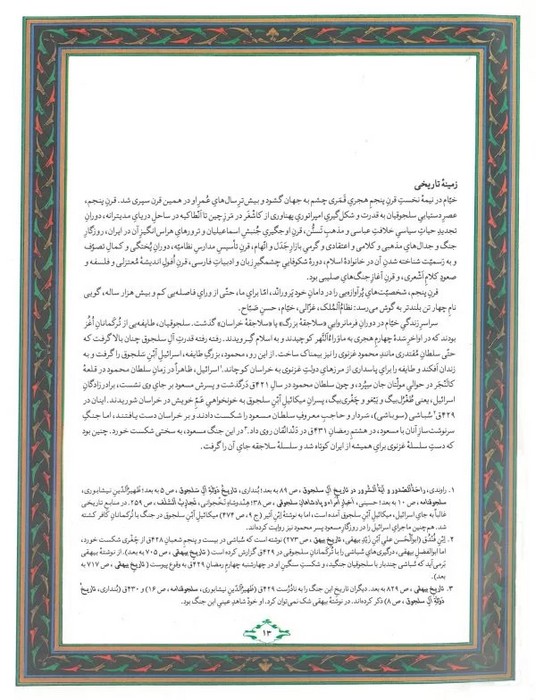 زمینهٔ تاریخی
خیّام در نیمهٔ نخستِ قرنِ پنجمِ هجریِ قَمَری چشم به جهان گشود و بیش‌ترِ سال‌های عُمرِ او در همین قرن سپری شد. قرنِ پنجم،
عصرِ دستیابیِ سلجوقیان به قدرت و شکل‌گیریِ امپراتوریِ پهناوری از کاشْغَر در مَرزِ چین تا اَنْطاکیه در ساحلِ دریای مدیترانه، دورانِ
تجدیدِ حیاتِ سیاسیِ خلافتِ عباسی و مذهبِ تَسَنُّن، قرنِ اوجگیریِ جُنبشِ اسماعیلیان و ترورهای هراس‌انگیزِ آن در ایران، روزگارِ
جنگ و جدال‌های مذهبی و کلامی و اعتقادی و گرمیِ بازارِ جَدَل و اتّهام، قرنِ تأسیسِ مدارسِ نظامیّه، دورانِ پُختگی و کمالِ تصوّف
و به رَسمیّت شناخته شدنِ آن در خانوادهٔ اسلام، دورهٔ شکوفاییِ چشمگیرِ زبان و ادبیاتِ فارسی، قرنِ اُفولِ اندیشهٔ مُعتزلی و فلسفه و
صعودِ کلامِ اَشْعَری، و قرنِ آغازِ جنگ‌های صلیبی بود.
قرنِ پنجم، شخصیّت‌های پُرآوازه‌یی را در دامانِ خود پَروراند، امّا برای ما، حتّی از ورایِ فاصله‌یی کم و بیش هزار ساله، گویی
نامِ چهار تن بلندتر به گوش می‌رسد: نظامُ‌المُلک، غزّالی، خیّام، حسنِ صبّاح.
سراسرِ زندگیِ خیّام در دورانِ فرمانرواییِ «سلاجقهٔ بزرگ» یا «سلاجقهٔ خراسان» گذشت. سلجوقیان، طایفه‌یی از تُرکمانانِ اُغُز
بودند که در اواخرِ سَدهٔ چهارمِ هجری به ماوَراءُالنَّهر کوچیدند و به اسلام گِرَویدند. رفته رفته قدرتِ آلِ سلجوق چنان بالا گرفت که
حتّی سلطانِ مُقتدری مانندِ محمودِ غزنوی را نیز بیمناک ساخت. از این رو، محمود، بزرگِ طایفه، اسرائیل اِبْنِ سلجوق را گرفت و به
زندان اَفکند و طایفه را برای پاسداری از مرزهای دولتِ غزنوی به خراسان کوچاند.۱ اسرائیل، ظاهراً در زمانِ سلطان محمود در قلعهٔ
کالَنْجَر در حوالیِ مولتان جان سپُرد، و چون سلطان محمود در سالِ ۴۲۱ق دَرگذشت و پسرش مسعود بر جای وی نشست، برادرزادگانِ
اسرائیل، یعنی طُغْرُل‌بیگ و یَبْغو و چَغْری‌بیگ، پسرانِ میکائیل اِبْنِ سلجوق به خونخواهیِ عَمّ خویش در خراسان شوریدند. اینان در
۴۲۹ق۲ سُباشی (سوباشی)، سَردار و حاجبِ معروفِ سلطان مسعود را شکست دادند و بر خراسان دست یافتند، اما جنگِ
سرنوشت‌سازِ آنان با مسعود، در هشتمِ رمضانِ ۴۳۱ق در دَنْدانْقان روی داد.۳ در این جنگ، مسعود، به سختی شکست خورد. چنین بود
که دستِ سلسلهٔ غزنوی برای همیشه از ایران کوتاه شد و سلسلهٔ سلاجقه جای آن را گرفت.
۱. راوندی، راحَةُ‌الصُّدور و آیَةُ‌السُّرور در تاریخِ آلِ سلجوق، ص ۸۹ به بعد؛ بُنداری، تاریخِ دَولَةِ آلِ سلجوق، ص ۵ به بعد؛ ظهیرُالدّینِ نیشابوری،
سلجوقنامه، ص ۱۰ به بعد؛ حسینی، اخبارُ اُمَراء و پادشاهانِ سلجوقی، ص ۳۸؛ هندوشاهِ نَخْجَوانی، تَجارِبُ السَّلَف، ص ۲۵۹. در منابع ما
به جای اسرائیل، میکائیل اِبْنِ سلجوق آمده است، اما به نوشتهٔ اِبْنِ اَثیر (ج ۹، ص ۴۷۴) میکائیل اِبْنِ سلجوق در جنگ با تُرکمانانِ کافر کشته
شد. هم‌چنین ماجرای اسرائیل را در روزگارِ مسعود پسرِ محمود نیز روایت کرده‌اند.
۲. اِبْنِ فُنْدُق (ابوالحَسَن علی اِبْنِ زَیدِ بِیْهَقی، تاریخِ بیهق، ص ۲۷۳) نوشته است که سُباشی در بیست و پنجمِ شعبانِ ۴۲۸ق از چَغْری شکست خورد،
اما ابوالفضلِ بیهقی، درگیری‌های سُباشی را با تُرکمانانِ سلجوقی در ۴۲۹ق گزارش کرده است (تاریخ بیهقی، ص ۷۰۵ به بعد). از نوشتهٔ بیهقی
بَرمی‌آید که سُباشی چندبار با سلجوقیان جنگید، و شکستِ سنگینِ او در چهارشنبه چهارمِ رمضانِ ۴۲۹ق به وقوع پیوست (تاریخ بیهقی، ص ۷۱۷ به
بعد).
۳. تاریخِ بیهقی، ص ۸۲۹ به بعد. دیگران تاریخِ این جنگ را به نادُرُست ۴۲۹ق (ظَهیرُالدّینِ نیشابوری، سلجوقنامه، ص ۱۶) و ۴۳۰ق (بُنداری، تاریخُ
دَولَةِ آلِ سلجوق، ص ۸) ذکر کرده‌اند. در نوشتهٔ بیهقی شک نمی‌توان کرد. او خودْ شاهدِ عینیِ این جنگ بود.
۱۳